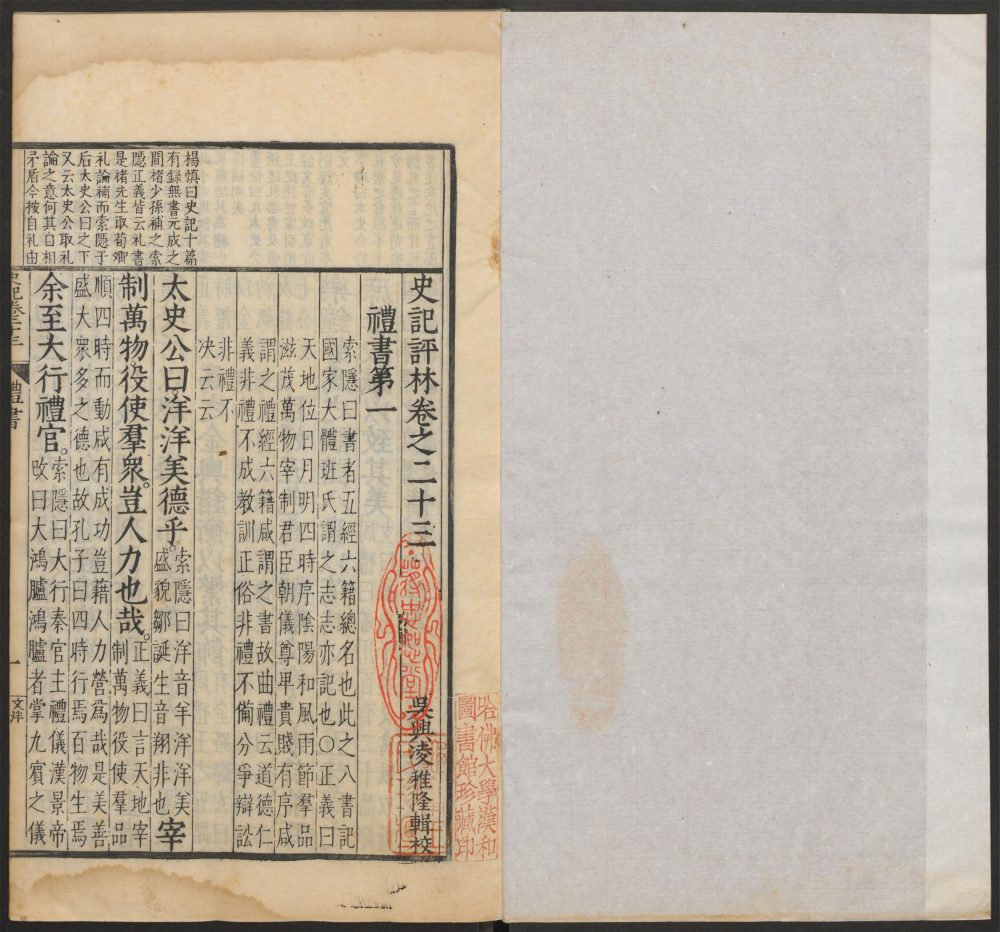 史記評林卷之二十三
吳興凌稚隆輯校
禮書第一
索隱曰書者五經六籍總名也此之八書記
國家大體班氏謂之志志亦記也○正義曰
天地位日月明四時序陰陽和風雨節羣品
滋茂萬物宰制君臣朝儀尊卑貴賤有序咸
謂之禮經六籍咸謂之書故曲禮云道德仁
義非禮不成教訓正俗非禮不備分爭辯訟
非禮不
決云云
太史公曰洋洋美德乎。
索隱曰洋音羊洋洋美
盛貌鄒誕生音翔非也
宰
制萬物。役使羣衆。豈人力也哉。
正義曰言天地宰
制萬物役使羣品
順四時而動咸有成功豈藉人力營爲哉是美善
盛大衆多之德也故孔子曰四時行焉百物生焉
余至大行禮官。
索隱曰大行秦官主禮儀漢景帝
改曰大鴻臚鴻臚者掌九賓之儀
楊慎曰史記十篇
有録無書元成之
間褚少孫補之索
隱正義皆云礼書
是褚先生取荀卿
礼論補而索隱于
后太史公曰之下
又云太史公取礼
論之意何其自相
矛盾今按自礼由
禮書
一
哈佛大學漢和
圖書館珍藏印